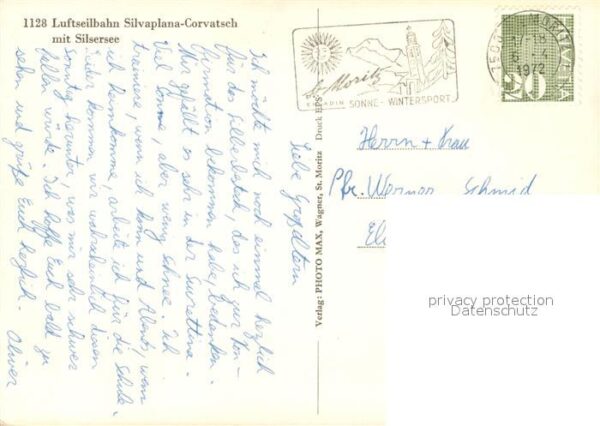 1128 Luftseilbahn Silvaplana-Corvatsch
mit Silsersee
St. Moritz
ENGADIN SONNE - WINTERSPORT
1972
HELVETIA
20
Verlag: PHOTO MAX, Wagner, St. Moritz Druck EPS
Liebe Großeltern
Ich möchte mich noch einmal herzlich
für das Silberbesteck, das ich zur Kon-
firmation bekommen habe, bedanken.
Mir gefällt es sehr in der Surettina.
Viel Sonne, aber wenig Schnee. Ich
trainiere, wenn ich kann und Abends, wenn
ich heimkomme, arbeite ich für die Schule.
Leider kommen wir wahrscheinlich diesen
Sonntag herunter, was mir sehr schwer
fallen würde. Ich hoffe Euch bald zu
sehen und grüße Euch herzlich. Oliver
Herrn + Frau
Pfr. Werner Schmid
privacy protection
Datenschutz